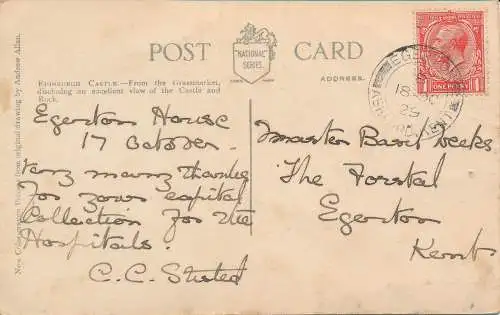 POST CARD
NATIONAL SERIES
ADDRESS.
EDINBURGH CASTLE.—From the Grassmarket,
disclosing an excellent view of the Castle and
Rock.
Egerton House
17 October.
Very many thanks
for your capital
Collection for the
Hospitals.
C. C. Stisted
Master Basil Weeks
The Forstal
Egerton
Kent
ONE PENNY
18 OC
29
from original drawing by Andrew Allan.